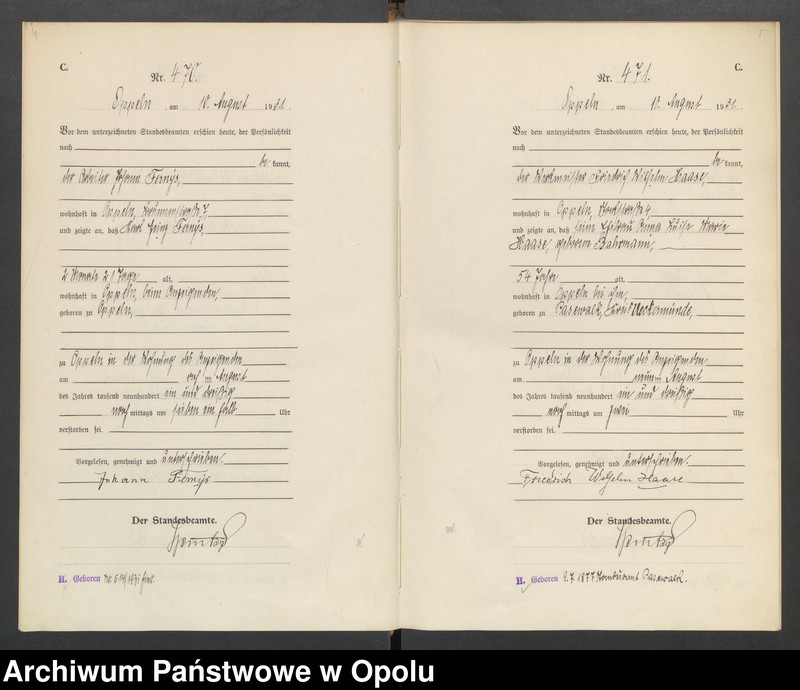 C.
Nr. 470.
Oppeln am 10. August 1931.
Vor dem unterzeichneten Standesbeamten erschien heute, der Persönlichkeit
nach
be kannt,
der Arbeiter Johann
wohnhaft in Oppeln, 7,
und zeigte an, daß Karl Heinz
2 Monate 21 Tage alt,
wohnhaft in Oppeln, beim Anzeigenden,
geboren zu Oppeln,
zu Oppeln in der Wohnung des Anzeigenden
am acht im August
des Jahres tausend neunhundert ein und dreißig
nach mittags um sieben ein halb Uhr
verstorben sei.
Vorgelesen, genehmigt und unterschrieben.
Johann
Der Standesbeamte.
H. Geboren Nr. 1931 hier.
C.
Nr. 471.
Oppeln, am 10. August 1931.
Vor dem unterzeichneten Standesbeamten erschien heute, der Persönlichkeit
nach
be kannt,
der Werkmeister Friedrich Wilhelm Haase,
wohnhaft in Oppeln, 4,
und zeigte an, daß seine Ehefrau Anna Luise Marie
Haase, geborene Bahrmann,
54 Jahre alt,
wohnhaft in Oppeln bei ihm,
geboren zu Pasewalk, Kreis Ueckermünde,
zu Oppeln in der Wohnung des Anzeigenden
am neun im August
des Jahres tausend neunhundert ein und dreißig
nach mittags um zwei Uhr
verstorben sei.
Vorgelesen, genehmigt und unterschrieben.
Friedrich Wilhelm Haase
Der Standesbeamte.
H. Geboren 9.7.1877 Pasewalk.
Archiwum Państwowe w Opolu